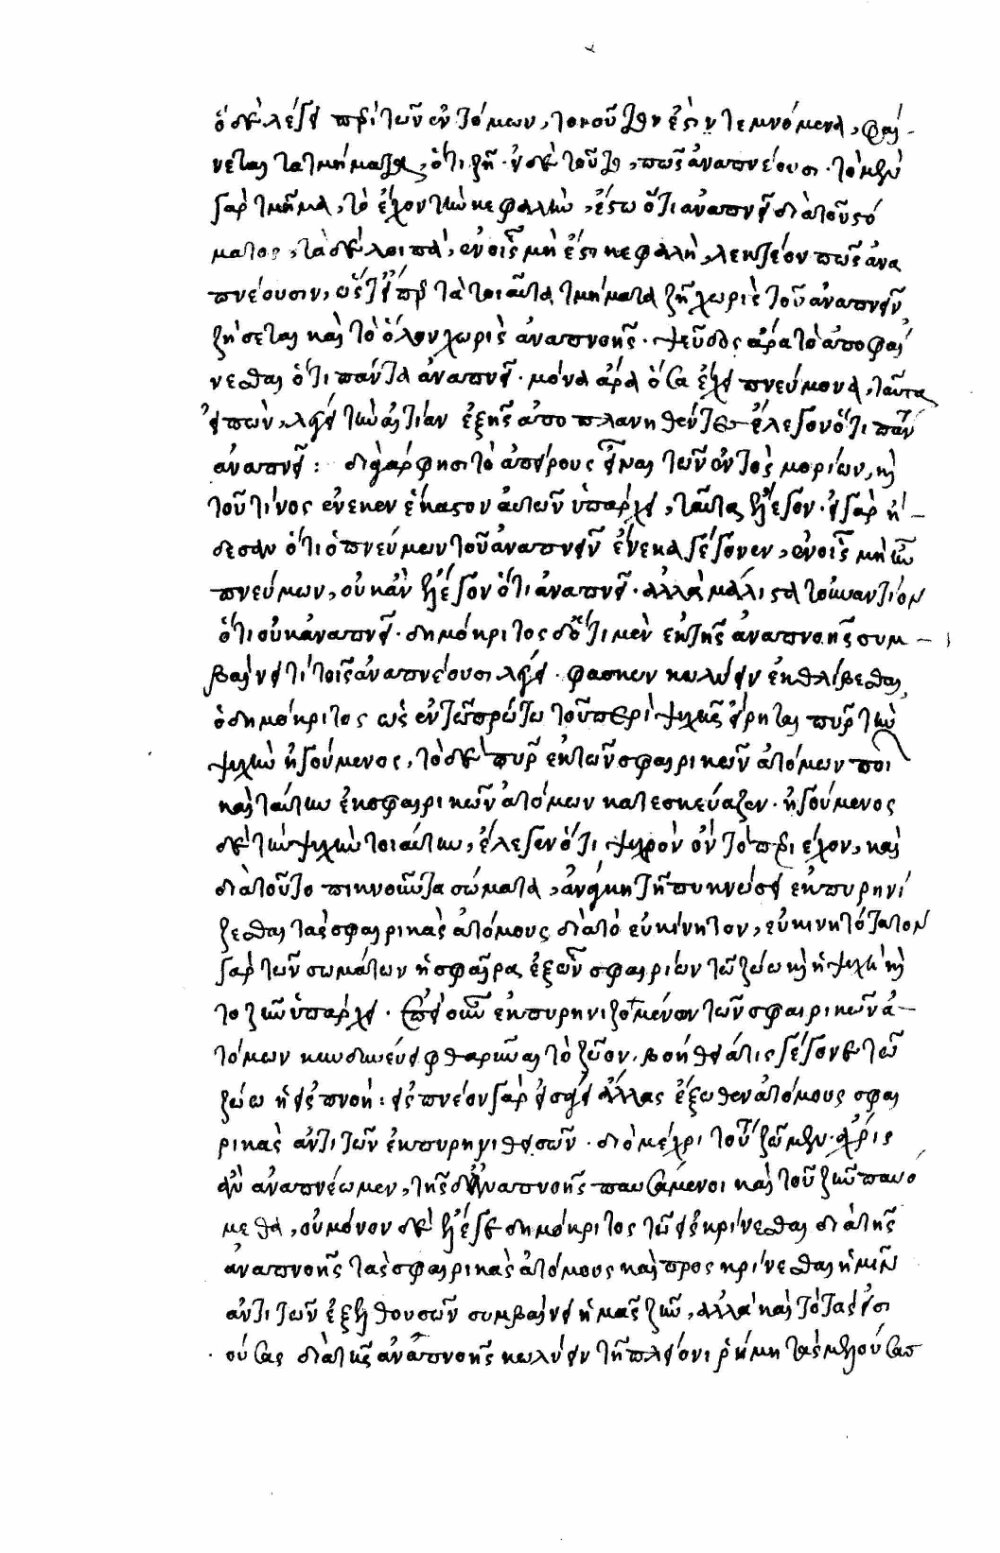 ὁ δὲ λέγει περὶ τῶν ἐντόμων, τοιοῦτον ἐστιν τεμνόμενα, φαί-
νεται τὰ τμήματα, ὅτι ζῇ· ἐν δὲ τούτω, πῶς ἀναπνέουσι· τὸ μὲν
γὰρ τμῆμα, τὸ ἔχον τὴν κεφαλὴν, ἔστω ὅτι ἀναπνεῖ διὰ τοῦ στό
ματος, τὰ δὲ λοιπὰ, ἐν οἷς μὴ ἔστι κεφαλὴ, λεκτέον πῶς ἀνα
πνέουσιν, ὥστ' εἴπερ τὰ τοιαῦτα τμήματα ζῇ χωρὶς τοῦ ἀναπνεῖν
ζήσεται καὶ τὸ ὅλον χωρὶς ἀναπνοῆς· ψεῦδος ἄρα τὸ ἀποφαί
νεσθαι ὅτι πάντα ἀναπνεῖ· μόνα ἄρα ὅσα ἔχει πνεύμονα, ταῦτα
εἰπὼν, λέγει τὴν αἰτίαν ἐξ ἧς ἀποπλανηθέντες ἔλεγον ὅτι πάντ
ἀναπνεῖ: διὰ γάρ φησι τὸ ἀπείρους εἶναι τῶν ἐντὸς μορίων, καὶ
τοῦ τίνος ἕνεκεν ἕκαστον αὐτῶν ὑπάρχει, ταῦτα ἔλεγον· εἰ γὰρ ἤ-
δεσαν ὅτι ὁ πνεύμων τοῦ ἀναπνεῖν ἕνεκα γέγονεν, ἐν οἷς μὴ ἦν
πνεύμων, οὐκ ἂν ἔλεγον ὅτι ἀναπνεῖ· ἀλλὰ μάλιστα τοὐναντίον
ὅτι οὐκ ἀναπνεῖ· δημόκριτος δ' ὅτι μὲν ἐκ τῆς ἀναπνοῆς συμ-
βαίνει τί τοῖς ἀναπνέουσι λέγει· φάσκων κωλύειν ἐκθλίβεσθαι
ὁ δημόκριτος ὡς ἐν τῶ πρώτω τοῦ περὶ ψυχῆς εἴρηται πῦρ τὴν
ψυχὴν ἡγούμενος, τὸ δὲ πῦρ ἐκ τῶν σφαιρικῶν ἀτόμων ποι
καὶ ταύτην ἐκ σφαιρικῶν ἀτόμων κατεσκεύαζεν· ἡγούμενος
δὲ τὴν ψυχὴν τοιαύτην, ἔλεγεν ὅτι ψυχρὸν ὂν τὸ περιέχον, καὶ
διὰ τοῦτο πυκνοῦν τὰ σώματα, ἀνάγκη τῇ πυκνώσει ἐκπυρηνί
ζεσθαι τὰς σφαιρικὰς ἀτόμους διὰ τὸ εὐκίνητον, εὐκινητότατον
γὰρ τῶν σωμάτων ἡ σφαῖρα, ἐξ ὧν σφαιρίων τῶ ζώω καὶ ἡ ψυχὴ καὶ
τὸ ζῆν ὑπάρχει· ἐπεὶ οὖν ἐκπυρηνιζομένων τῶν σφαιρικῶν ἀ-
τόμων κινδυνεύει φθαρῆναι τὸ ζῶον, βοήθειά τις γέγονε τῶ
ζώω ἡ εἰσπνοή: εἰσπνέον γὰρ εἰσάγει ἄλλας ἔξωθεν ἀτόμους σφαι
ρικὰς ἀντὶ τῶν ἐκπυρηνισθεισῶν· διὸ μέχρι τούτου ζῶμεν· ἄχρις
ἂν ἀναπνέωμεν, τῆς δὲ ἀναπνοῆς παυσάμενοι καὶ τοῦ ζῆν παυό
μεθα, οὐ μόνον δὲ ἔλεγε δημόκριτος τῶ εἰσκρίνεσθαι διὰ τῆς
ἀναπνοῆς τὰς σφαιρικὰς ἀτόμους καὶ προσκρίνεσθαι ἡμῖν
ἀντὶ τῶν ἐξελθουσῶν συμβαίνει ἡμᾶς ζῆν, ἀλλὰ καὶ τῶ τὰς εἰσι
ούσας διὰ τῆς ἀναπνοῆς κωλύειν τῇ πλείονι ῥύμη τὰς μενούσας